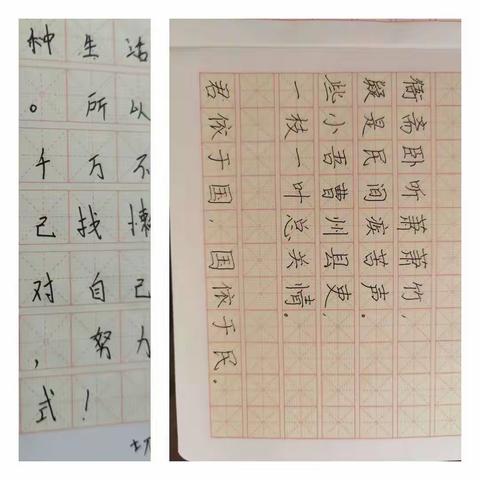 种生活
。所以
千万不
己找
对自己
，努力
式！
衙斋卧听萧萧竹，
疑是民间疾苦声。
些小吾曹州县吏，
一枝一叶总关情。
君依于国，国依于民。